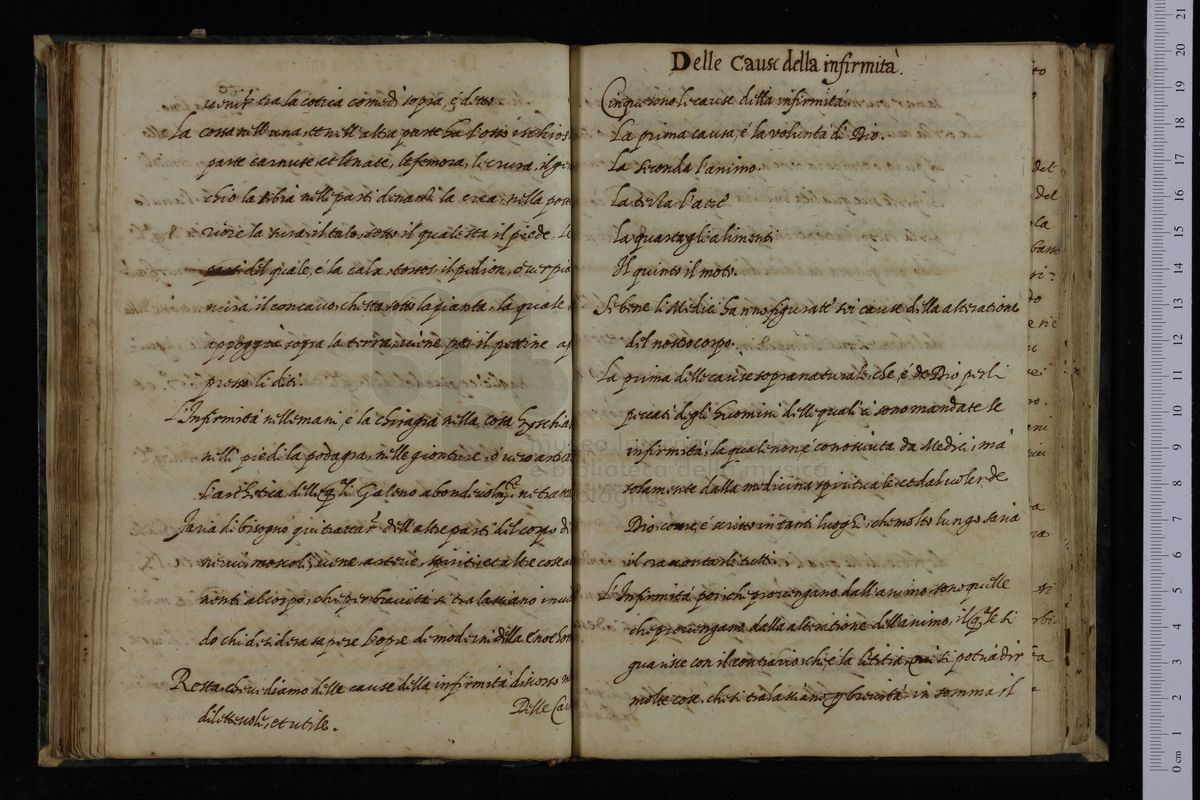 tra la cotica come di sopra, é detto
La cossa nell'una, et nell'altra parte ha l'osso ischios
parte carnuse et lenate, la femora, le crura, il gi
chio la tibia nelle parti denandi la crea, nella post
riore la sura, il talo, sotto il quale sta il piede. Le
parti del quale, é la calx, torsos, il pedion,
il concauo, che sta sotto la pianta, la quale
appoggia sopra la terra, uiene poi il pettine ap
presso li diti.
L'Infirmitá nelle mani, é la chiragra nella cossa
nelli piedi la podagra, nelle gionture, ó uero
l'arthetica, delle qli Galeno abondeuolmte ne tratta
Saria di bisogno qui trattar dell'altre parti del corpo di
nerui, moscoli, uiene, arterie, spiriti, et altre cose
nenti al corpo, che per breuitá si tralasciano
do chi desidera sapere l'opre de moderni della
Resta, che uediamo delle cause della infirmitá discorso
diletteuole, et utile.
Delle Cau
Delle Cause della infirmitá.
Cinque sono le cause della infirmitá
La prima causa, é la voluntá di Dio.
La seconda l'animo.
La terza l'aere
La quarta gli alimenti
Il quinto il moto.
Se bene li Medici hanno figurate sei cause della alteratione
del nostro corpo.
La prima delle cause sopranaturale, che, é da Dio per li
peccati degli huomini delli quali ci sono mandate le
infirmitá, la quale non é conosciuta da Medici, má
solamente dalla medicina spirituale, et dal uoler de
Dio, come, é scritto in tanti luoghi, che molto lungo saria
il racontarli tutti.
L'Infirmitá poi, che prouengano dall'animo, sono quelle
che prouengano dalla alteratione dell'animo, il qle si
guarisse con il contrario, che, é la letitia, qui si potriá dir
molte cose, che si tralasciano p breuitá, in somma il
museo internazionale
e biblioteca della musica
di bologna